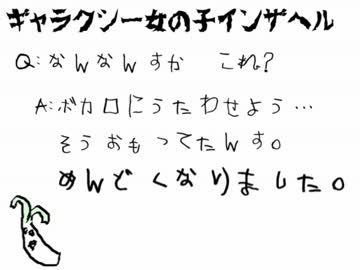 ギャラクシー女の子インザヘル
Q:なんなんすか これ?
A:ボカロにうたわせよう…
そうおもってたんす。
めんどくなりました。